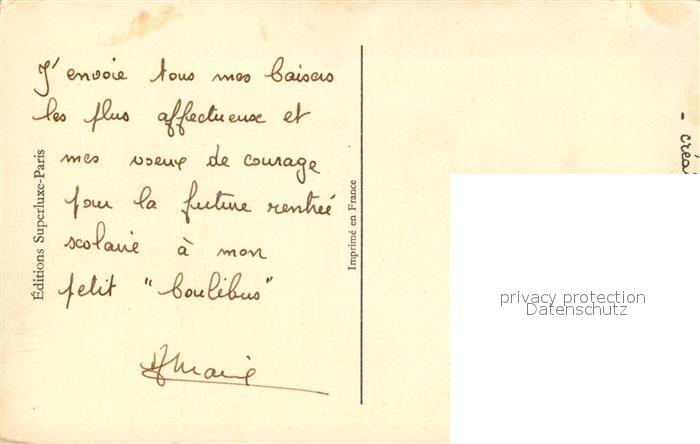 J'envoie tous mes baisers
les plus affectueux et
mes voeux de courage
pour la future rentrée
scolaire à mon
petit "boulibus"
Editions Superluxe-Paris
Imprimé en France
- créa
privacy protection
Datenschutz